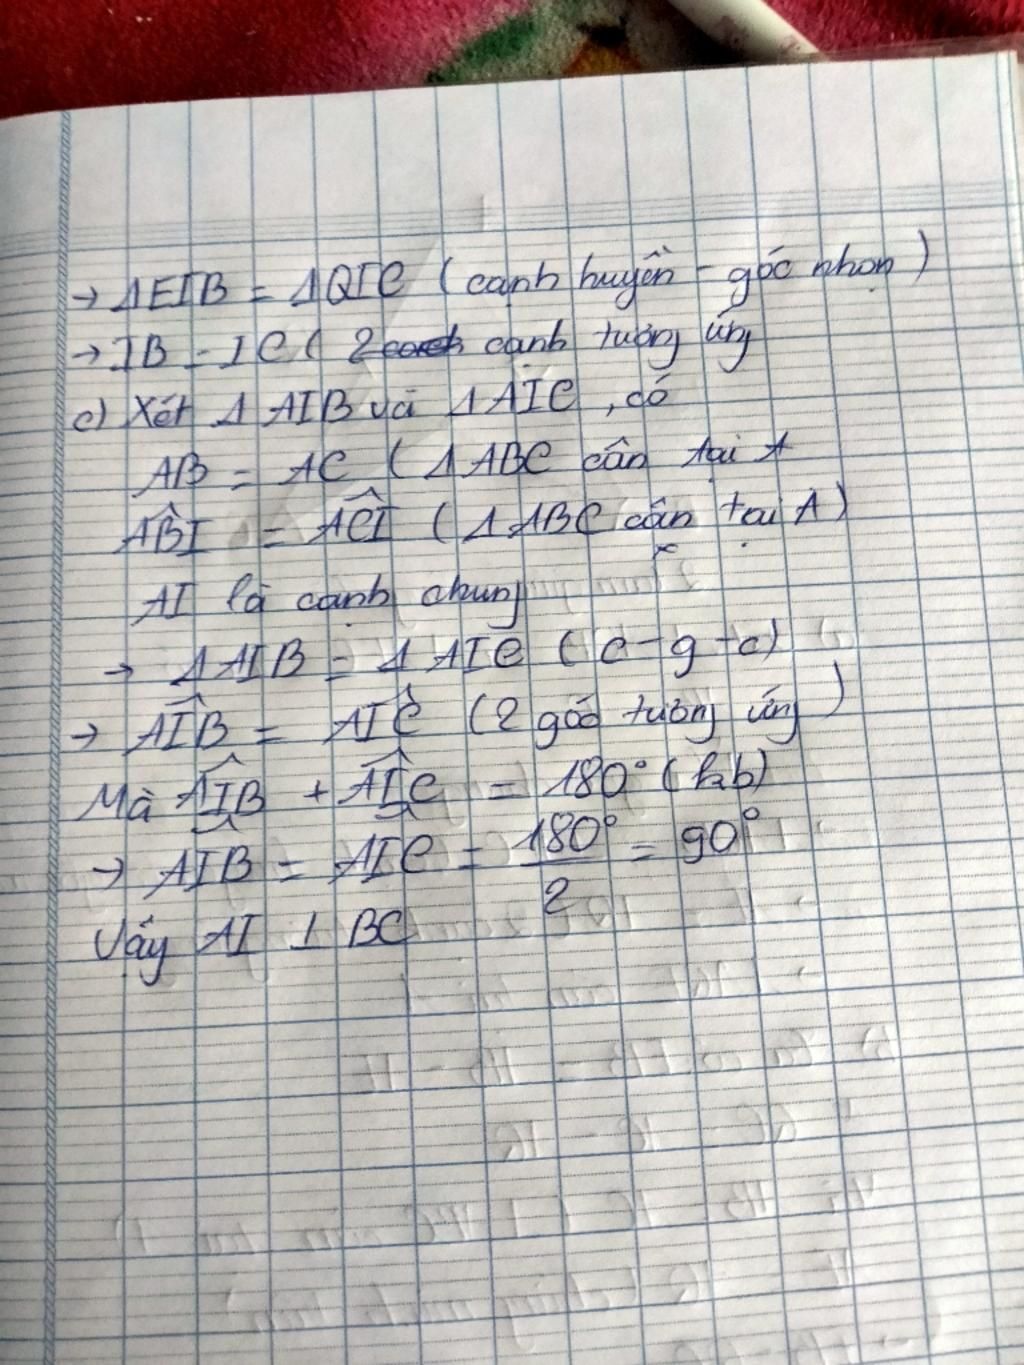 → ΔEIB = ΔQIC ( cạnh huyền - góc nhọn )
→ IB = IC ( 2 cạnh tương ứng
c) Xét Δ AIB và Δ AIC , có
AB = AC ( Δ ABC cân tại A
ABI = ACI ( Δ ABC cân tại A )
AI là cạnh chung
→ Δ AIB = Δ AIC ( c - g - c )
→ AIB = AIC ( 2 góc tương ứng )
Mà AIB + AIC = 180° ( kb )
→ AIB = AIC = 180°/2 = 90°
Vậy AI ⊥ BC